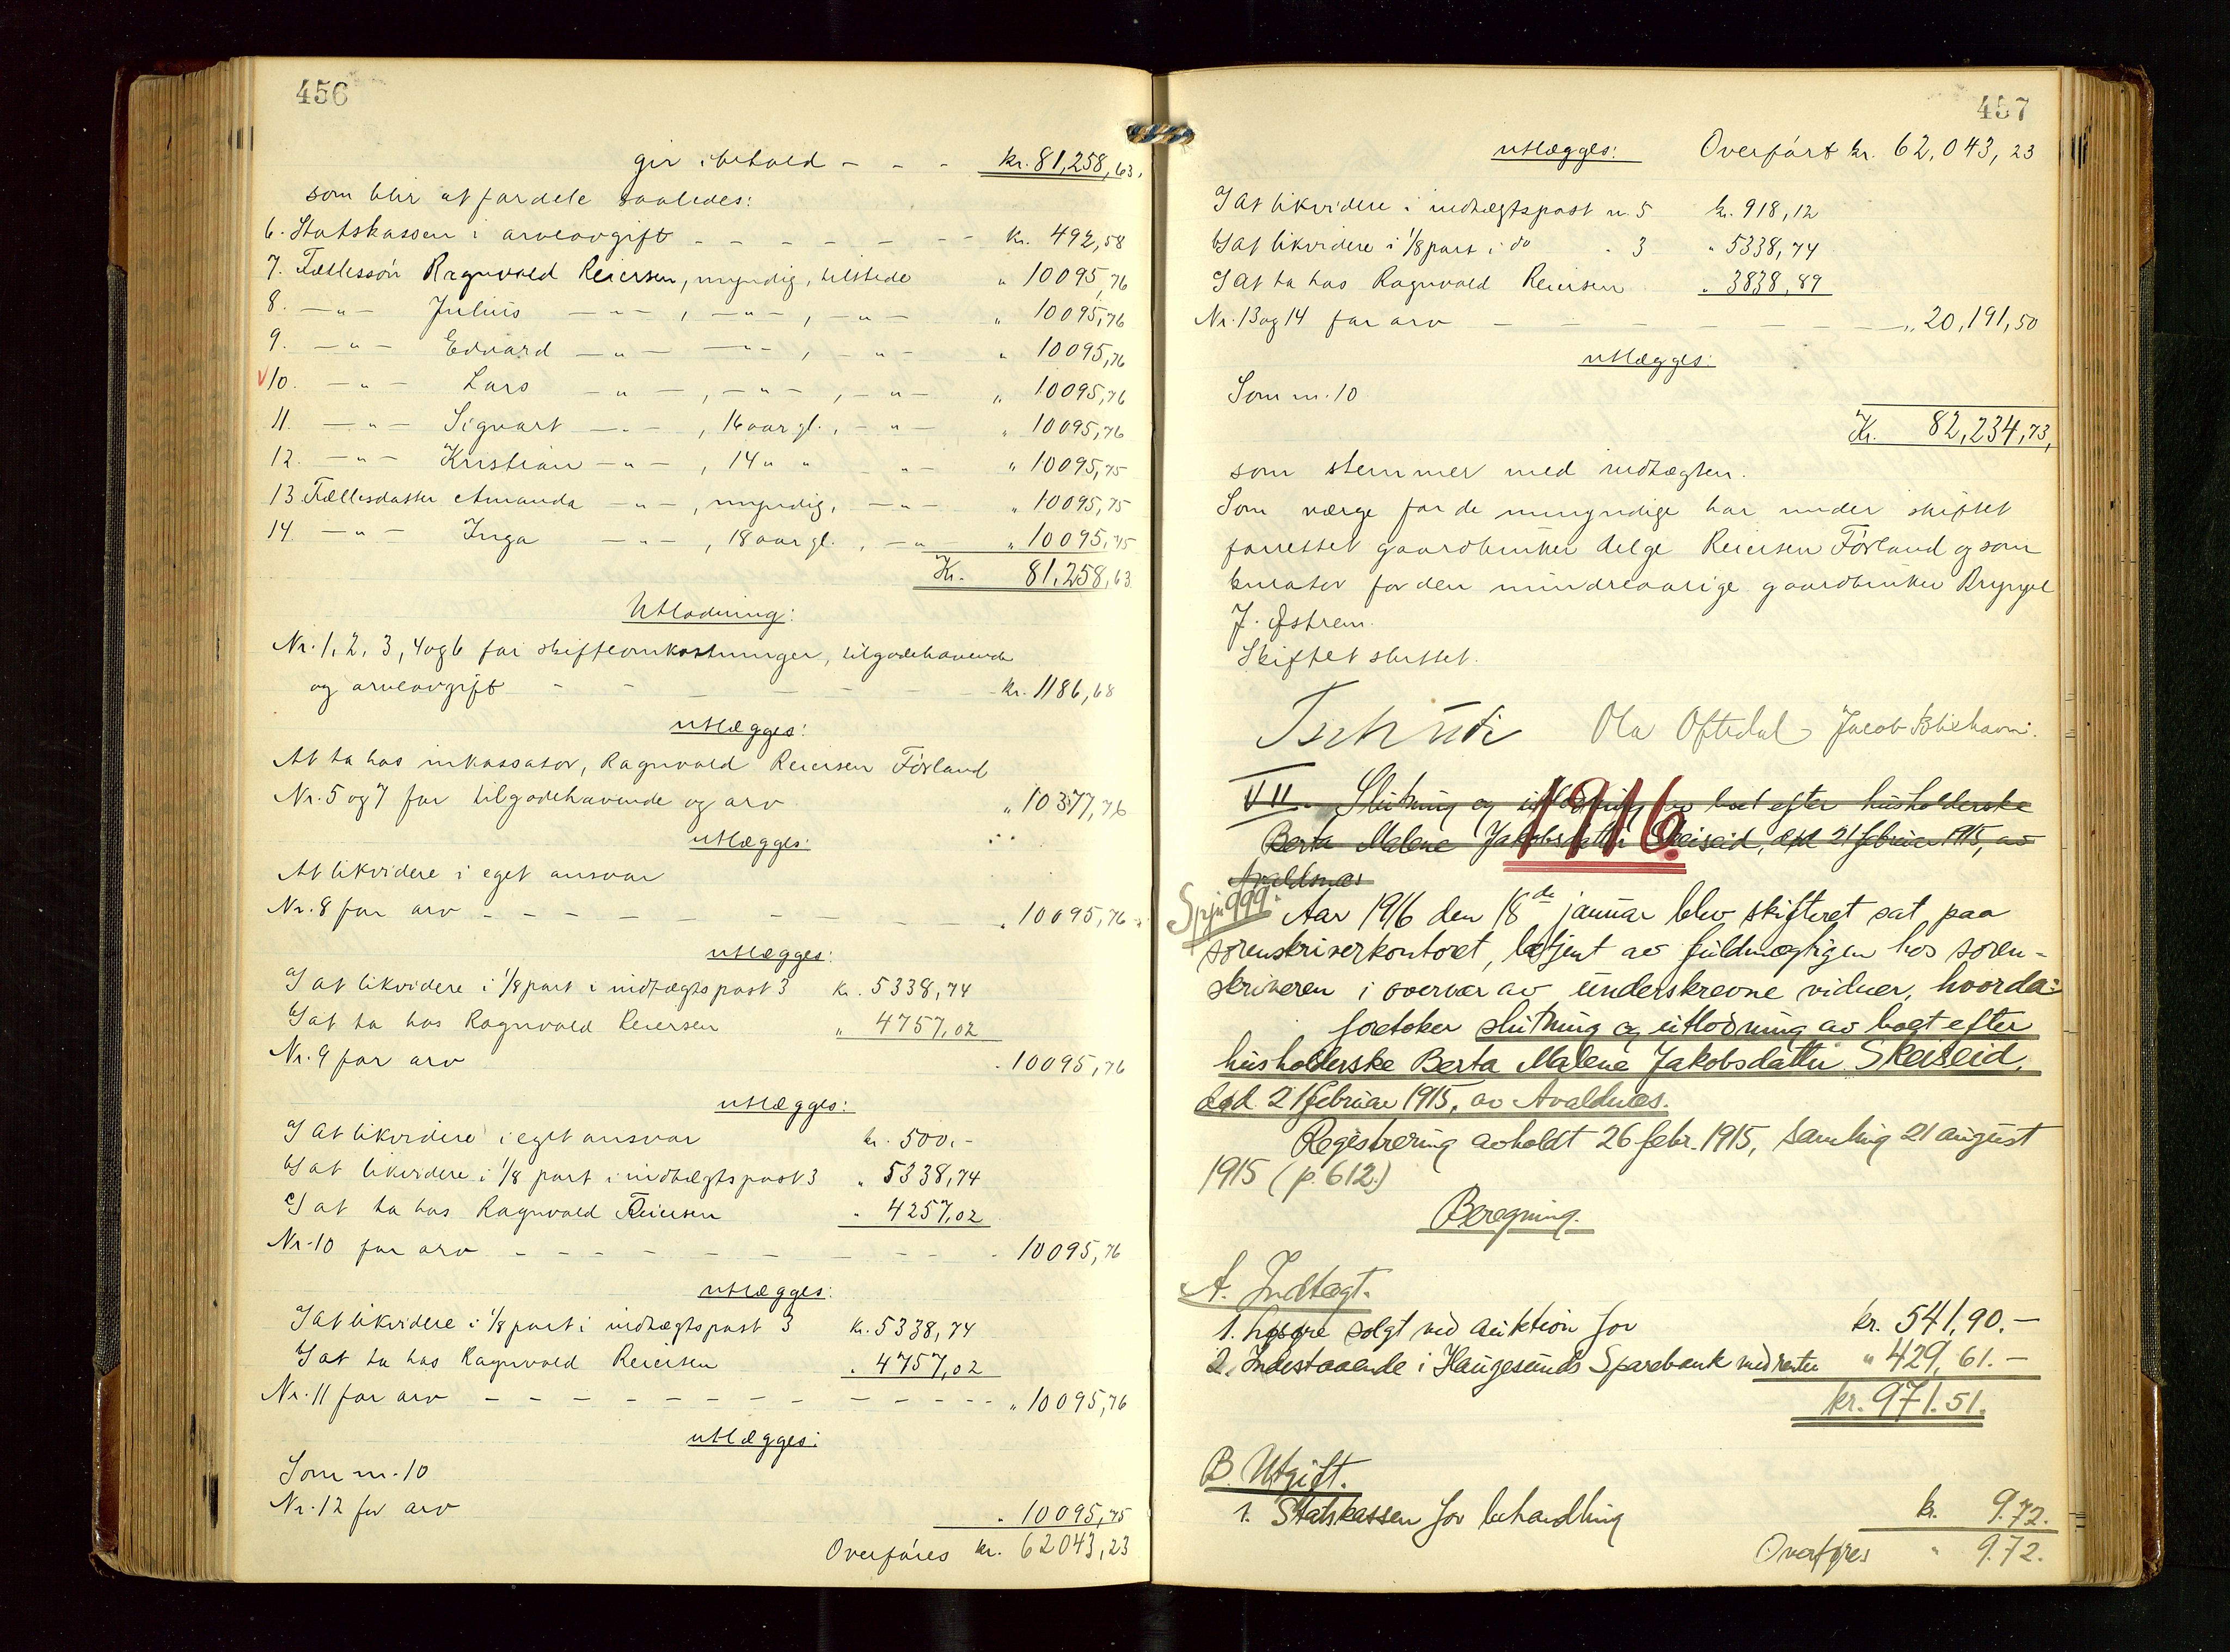 456
gir i behold - - - kr. 81,258,63.
som blir at fordele saaledes:
6. Statskassen i arveavgift - - - - - - kr. 492,58
7. Fællessøn Ragnvald Reiersen, myndig, tilstede " 10095,76
8. -"- Julius -"-, -"-, -"- " 10095,76
9. -"- Edvard -"- -"-, -"- " 10095,76
10. -"- Lars -"-, -"-, -"- " 10095,76
11. -"- Sigvart -"-, 16 aar gl., -"- " 10095,76
12. -"- Kristian -"-, 14 " " -"- " 10095,75
13 Fællesdatter Amanda -"-, myndig, -"- " 10095,75
14. -"- Inga -"-, 18 aar gl., -"- " 10095,75
Kr. 81,258,63
Utlodning:
Nr. 1, 2, 3, 4 og 6 for skifteomkostninger, tilgodehavende
og arveavgift - - - - - - kr. 1186,68
utlægges:
At ta hos inkassator, Ragnvald Reiersen Førland
Nr. 5 og 7 for tilgodehavende og arv " 10377,76
utlægges:
At likvidere i eget ansvar
Nr. 8 for arv - - - - - - - - " 10095,76
utlægges:
a) at likvidere i 1/8 part i indtægtspost 3 kr. 5338,74
b) at ta hos Ragnvald Reiersen " 4757,02
Nr. 9 for arv " 10095,76
utlægges:
a) at likvidere i eget ansvar kr. 500.-
b) at likvidere i 1/8 part i indtægtspost 3 " 5338,74
c) at ta hos Ragnvald Reiersen " 4257,02
Nr. 10 for arv - - - - - - - - " 10095,76
utlægges:
a) at likvidere i 1/8 part i indtægtspost 3 kr. 5338,74
b) at ta hos Ragnvald Reiersen " 4757,02
Nr. 11 for arv - - - - - - - - - - " 10095,76
utlægges:
Som nr. 10
Nr. 12 for arv " 10095,75
Overføres kr. 62043,23
457
utlægges: Overført kr. 62,043,23
a) at likvidere i indtægtspost nr. 5 kr. 918,12
b) at likvidere i 1/8 part i do " 3 " 5338,74
c) at ta hos Ragnvald Reiersen " 3838,89
Nr. 13 og 14 for arv - - - - - - - " 20,191,50
utlægges:
Som nr. 10
Kr. 82,234,73,
som stemmer med indtægten.
Som værge for de umyndige har under skiftet
forrettet gaardbruker Helge Reiersen Førland og som
kurator for den mindreaarige gaardbruker Brynjel
J. Østrem.
Skiftet sluttet.
Tschudi Ola Oftedal Jacob Blikhavn.
VII. Slutning og utlodning av boet efter husholderske
Berta Malene Jakobsdatter Skeiseid, død 21 februar 1915, av
Avaldsnes
1916.
999. Aar 1916 den 18de januar blev skifteret sat paa
sorenskriverkontoret, betjent av fuldmægtigen hos soren-
skriveren i overvær av underskrevne vidner, hvorda:
foretokes slutning og utlodning av boet efter
husholderske Berta Malene Jakobsdatter Skeiseid,
død 21 februar 1915, av Avaldnes.
Registrering avholdt 26 febr. 1915, samling 21 august
1915 (p. 612.)
Beregning.
A. Indtægt.
1. Løsøre solgt ved auktion for kr. 541,90.-
2. Indestaaende i Haugesunds Sparebank med renter " 429,61.-
kr. 971.51.
B. Utgift.
1. Statskassen for behandling kr. 9.72.
Overføres " 9.72.